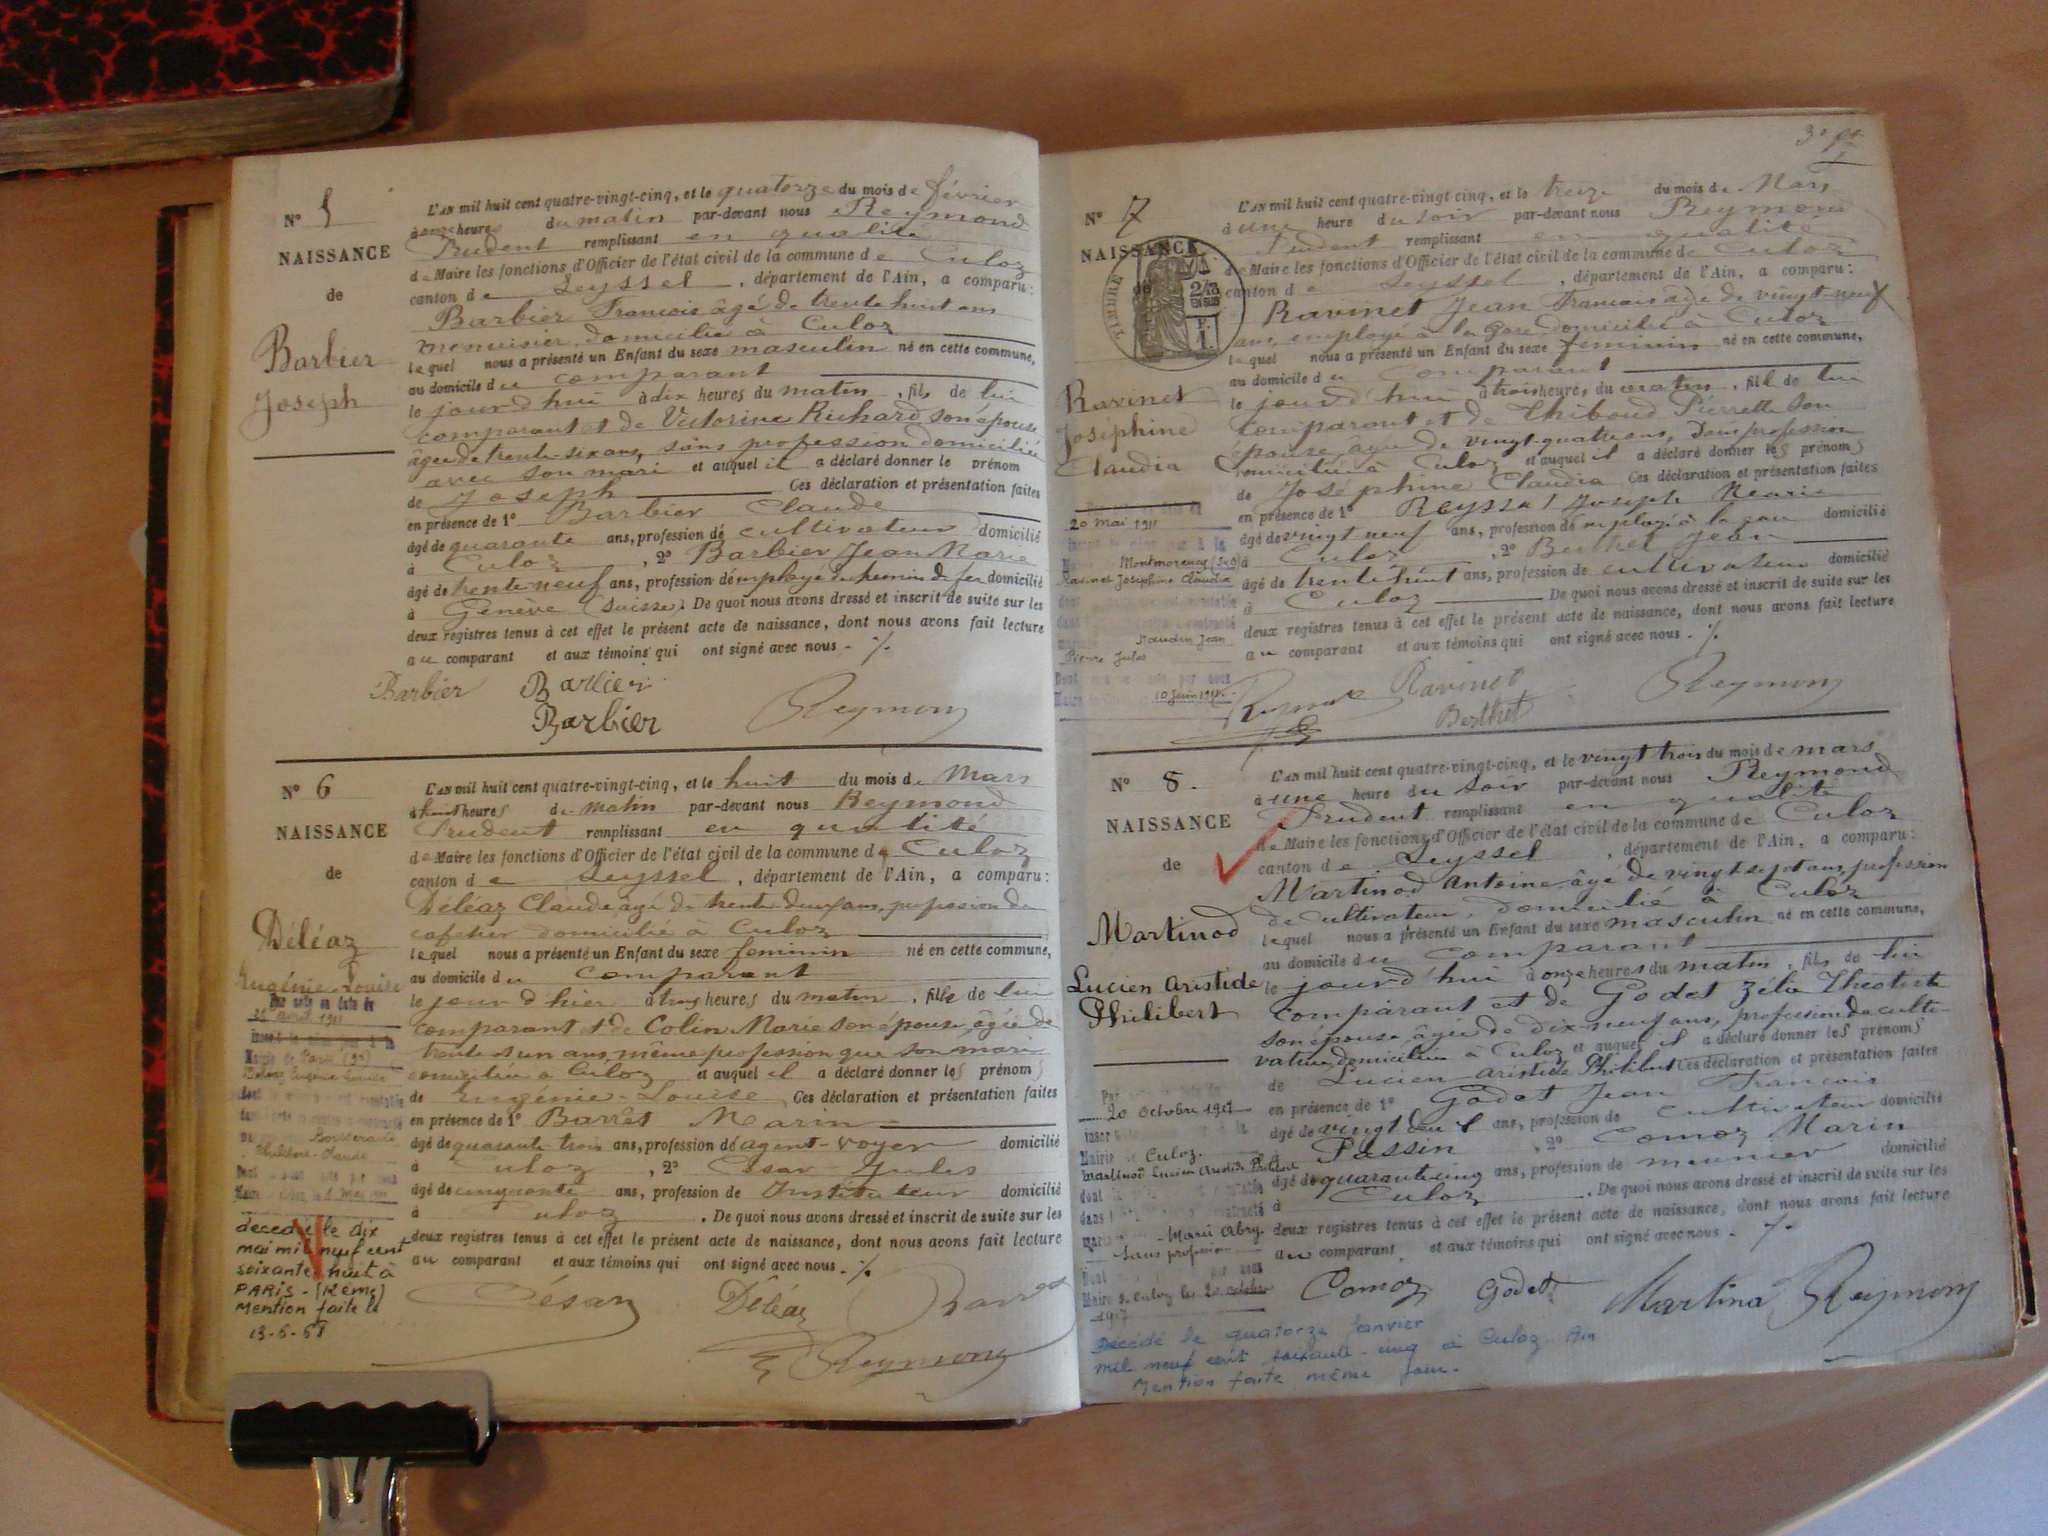 N° 5
NAISSANCE
de
Barbier
Joseph
L'AN mil huit cent quatre-vingt-cinq, et le quatorze du mois de février
à onze heures du matin par-devant nous Reymond
Prudent remplissant en qualité
de Maire les fonctions d'Officier de l'état civil de la commune de Culoz
canton de Seyssel, département de l'Ain, a comparu:
Barbier François âgé de trente huit ans
menuisier, domicilié à Culoz
lequel nous a présenté un Enfant du sexe masculin né en cette commune,
au domicile du comparant
le jour d'hui à dix heures du matin, fils de lui
comparant et de Victorine Richard son épouse
âgée de trente-six ans, sans profession domiciliée
avec son mari et auquel il a déclaré donner le prénom
de Joseph Ces déclaration et présentation faites
en présence de 1° Barbier Claude
âgé de quarante ans, profession de cultivateur domicilié
à Culoz, 2° Barbier Jean Marie
âgé de trente neuf ans, profession d'employé du chemin de fer domicilié
à Genève (Suisse). De quoi nous avons dressé et inscrit de suite sur les
deux registres tenus à cet effet le présent acte de naissance, dont nous avons fait lecture
au comparant et aux témoins qui ont signé avec nous.
Barbier Barbier Reymond
Barbier
N° 6
NAISSANCE
de
Déléaz
Eugénie Louise
Par acte en date du
avril 1911
Mairie de Paris
décédée le dix
mai mil neuf cent
soixante huit à
PARIS - (Xème)
Mention faite le
13-6-68
L'AN mil huit cent quatre-vingt-cinq, et le huit du mois de Mars
à huit heures du matin par-devant nous Reymond
Prudent remplissant en qualité
de Maire les fonctions d'Officier de l'état civil de la commune de Culoz
canton de Seyssel, département de l'Ain, a comparu:
Déléaz Claude âgé de trente deux ans, profession de
cafetier domicilié à Culoz
lequel nous a présenté un Enfant du sexe feminin né en cette commune,
au domicile du comparant
le jour d'hier à heures du matin, fille de lui
comparant et de Colin Marie son épouse, âgée de
trente et un ans, même profession que son mari
domiciliée à Culoz et auquel il a déclaré donner les prénoms
de Eugénie-Louise Ces déclaration et présentation faites
en présence de 1° Barrêt Marin
âgé de quarante trois ans, profession d'agent-voyer domicilié
à Culoz, 2° César Jules
âgé de cinquante ans, profession de Instituteur domicilié
à Culoz. De quoi nous avons dressé et inscrit de suite sur les
deux registres tenus à cet effet le présent acte de naissance, dont nous avons fait lecture
au comparant et aux témoins qui ont signé avec nous.
César Déléaz Barret
Reymond
N° 7
NAISSANCE
de
TIMBRE
Ravinet
Joséphine
Claudia
20 Mai 1911
Montmorency (S&O)
Ravinet Joséphine Claudia
Jean
Pierre Jules
10 Juin
L'AN mil huit cent quatre-vingt-cinq, et le treize du mois de Mars
à une heure du soir par-devant nous Reymond
Prudent remplissant en qualité
de Maire les fonctions d'Officier de l'état civil de la commune de Culoz
canton de Seyssel, département de l'Ain, a comparu:
Ravinet Jean François âgé de vingt-neuf
ans, employé à la Gare domicilié à Culoz
lequel nous a présenté un Enfant du sexe feminin né en cette commune,
au domicile du comparant
le jour d'hui à trois heures, du matin, fille de lui
comparant et de Thiboud Pierrette son
épouse, âgée de vingt-quatre ans, sans profession
domiciliée à Culoz et auquel il a déclaré donner les prénoms
de Joséphine Claudia Ces déclaration et présentation faites
en présence de 1° Joseph Marie
âgé de vingt neuf ans, profession d'employé à la gare domicilié
à Culoz, 2° Berthet Jean
âgé de trente huit ans, profession de cultivateur domicilié
à Culoz De quoi nous avons dressé et inscrit de suite sur les
deux registres tenus à cet effet le présent acte de naissance, dont nous avons fait lecture
au comparant et aux témoins qui ont signé avec nous.
Ravinet Reymond
Berthet
N° 8.
NAISSANCE
de
Martinod
Lucien Aristide
Philibert
20 Octobre 1907
Mairie de Culoz
Martinod Lucien Aristide Philibert
Marie Abry
Sans profession
Culoz le 20 octobre
1907
L'AN mil huit cent quatre-vingt-cinq, et le vingt trois du mois de mars
à une heure du soir par-devant nous Reymond
Prudent remplissant en qualité
de Maire les fonctions d'Officier de l'état civil de la commune de Culoz
canton de Seyssel, département de l'Ain, a comparu:
Martinod Antoine âgé de vingt sept ans, profession
de cultivateur, domicilié à Culoz
lequel nous a présenté un Enfant du sexe masculin né en cette commune,
au domicile du comparant
le jour d'hui à onze heures du matin, fils de lui
comparant et de Godet Zélie
son épouse âgée de dix-neuf ans, profession de culti-
vateur domiciliée à Culoz et auquel il a déclaré donner les prénoms
de Lucien Aristide Philibert Ces déclaration et présentation faites
en présence de 1° Godet Jean François
âgé de vingt ans, profession de cultivateur domicilié
à Passin, 2° Comoz Marin
âgé de quarante cinq ans, profession de meunier domicilié
à Culoz. De quoi nous avons dressé et inscrit de suite sur les
deux registres tenus à cet effet le présent acte de naissance, dont nous avons fait lecture
au comparant et aux témoins qui ont signé avec nous.
Comoz Godet Martinod Reymond
Décédé le quatorze Janvier
mil neuf cent soixante-cinq à Culoz Ain
Mention faite même jour.